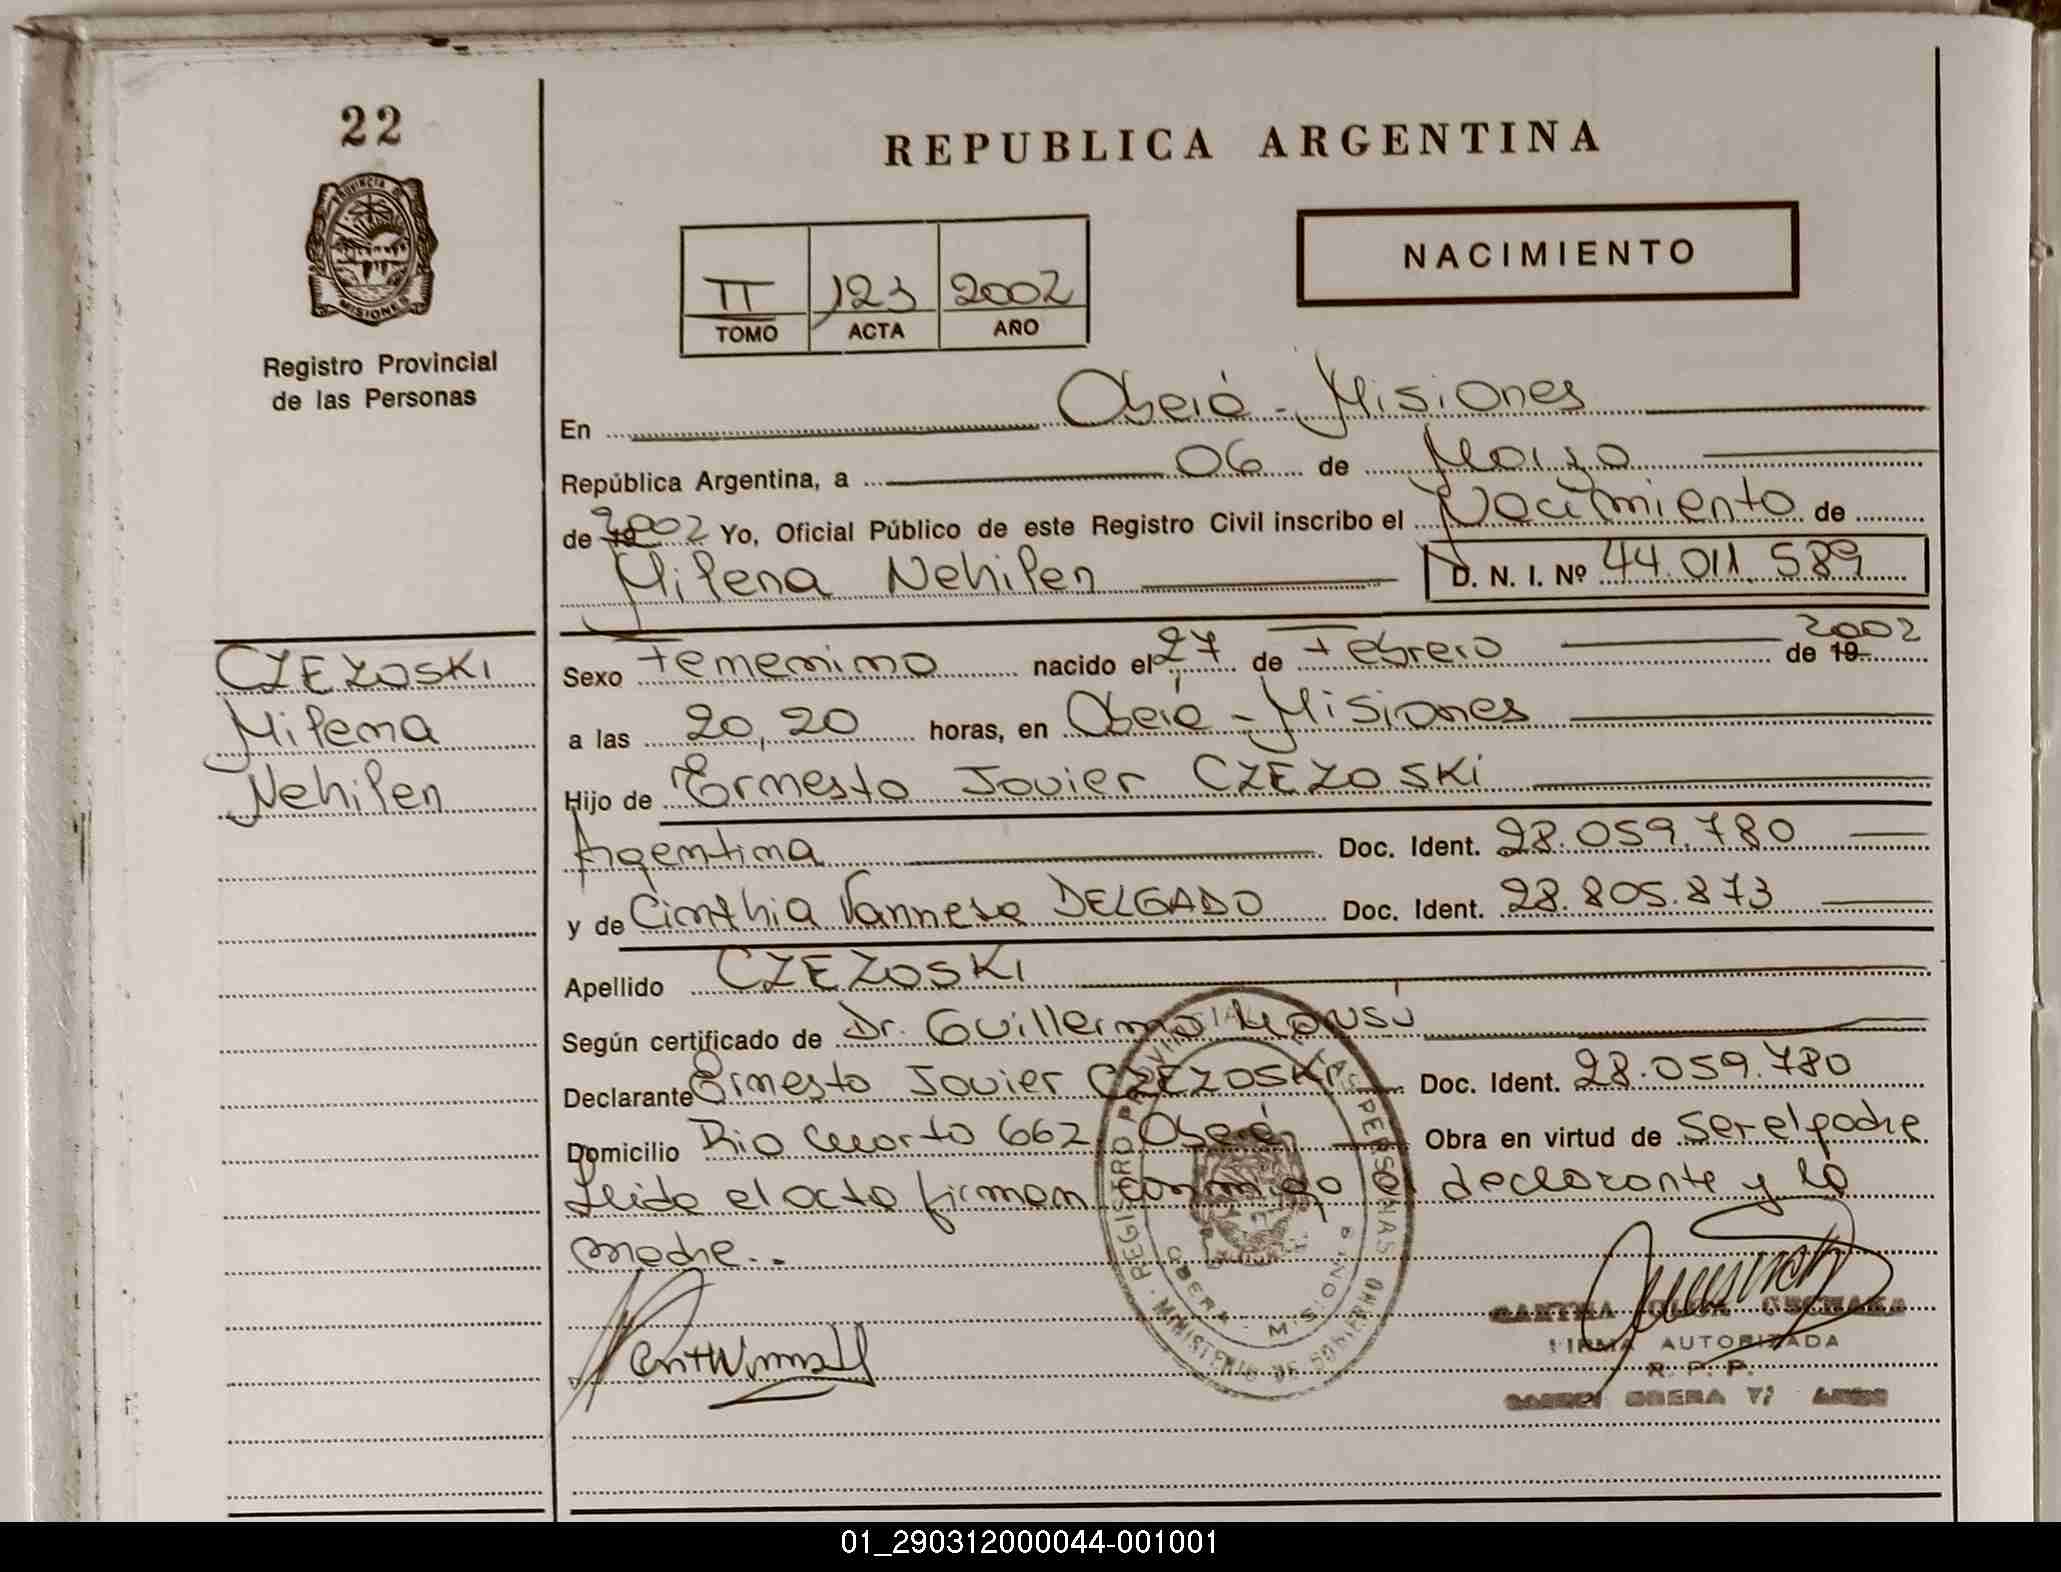 22
PROVINCIA DE
MISIONES
Registro Provincial
de las Personas
REPUBLICA ARGENTINA
NACIMIENTO
II 123 2002
TOMO ACTA AÑO
En Oberá - Misiones
República Argentina, a 06 de Marzo
de 19 2002 Yo, Oficial Público de este Registro Civil inscribo el Nacimiento de
Milena Nehilen D. N. I. Nº 44.011.589
CZEZOSKI
Milena
Nehilen
Sexo Femenino nacido el 27 de Febrero de 19 2002
a las 20,20 horas, en Oberá - Misiones
Hijo de Ernesto Javier CZEZOSKI
Argentina Doc. Ident. 28.059.780
y de Cinthia Vannesa DELGADO Doc. Ident. 28.805.873
Apellido CZEZOSKI
Según certificado de Dr. Guillermo
Declarante Ernesto Javier CZEZOSKI Doc. Ident. 28.059.780
Domicilio Rio Cuarto 662 Oberá Obra en virtud de ser el padre
Leida el acta firman conmigo el declarante y la
madre..
REGISTRO PROVINCIAL DE LAS PERSONAS
MINISTERIO DE GOBIERNO
OBERA - MISIONES
FIRMA AUTORIZADA
R. P. P.
OBERA
01_290312000044-001001